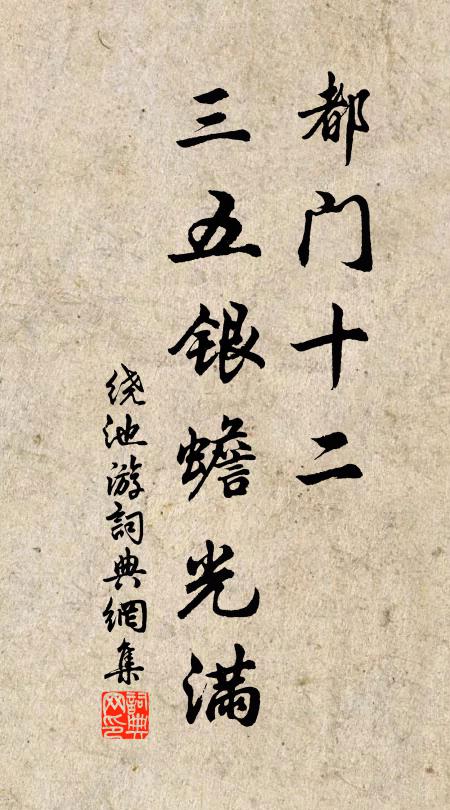 都门十二
三五银蟾光满
绕池游詞典網集
詞典网印